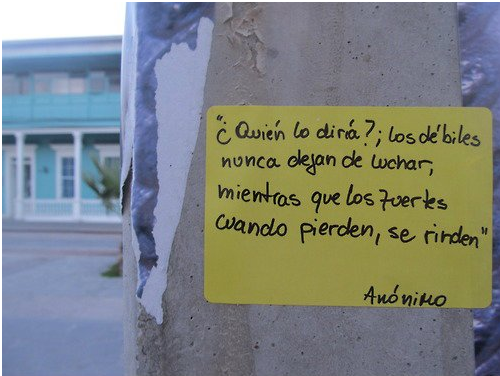 "¿Quién lo diría?; los débiles
nunca dejan de luchar,
mientras que los fuertes
cuando pierden, se rinden"
Anónimo